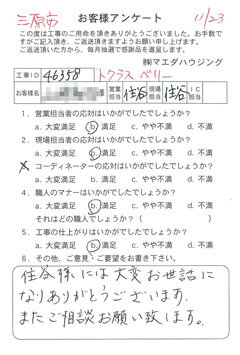 三原市
お客様アンケート
11/23
この度は工事のご用命を頂きありがとうございました。お手数で
すがご記入頂き、ご返送頂けますようお願い申し上げます。
ご返送頂いた方から、毎月抽選で感謝品を進呈します。
㈱マエダハウジング
工事ID 46358 トクラス ベリー
お客様名 営業担当 住吉 IC担当 住吉
1. 営業担当者の応対はいかがでしたでしょうか?
a. 大変満足 b. 満足 c. やや不満 d. 不満
2. 現場担当者の応対はいかがでしたでしょうか?
a. 大変満足 b. 満足 c. やや不満 d. 不満
3. コーディネーターの応対はいかがでしたでしょうか?
a. 大変満足 b. 満足 c. やや不満 d. 不満
4. 職人のマナーはいかがでしたでしょうか?
a. 大変満足 b. 満足 c. やや不満 d. 不満
それはどの職人でしょうか? ( )
5. 工事の仕上がりはいかがでしたでしょうか?
a. 大変満足 b. 満足 c. やや不満 d. 不満
6. その他、ご意見・ご要望をお書き下さい。
住吉様には大変お世話に
なりありがとうございます。
またご相談お願い致します。